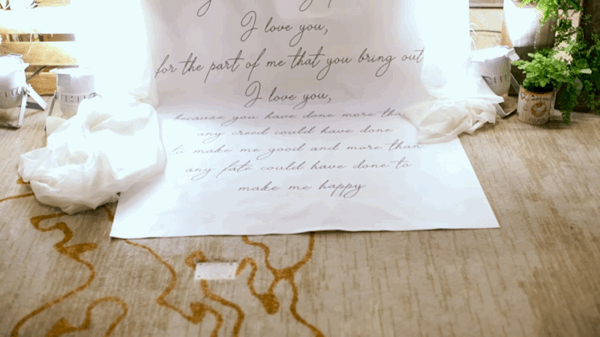 I love you,
for the part of me that you bring out
I love you,
because you have done more than
any creed could have done
to make me good and more than
any fate could have done to
make me happy